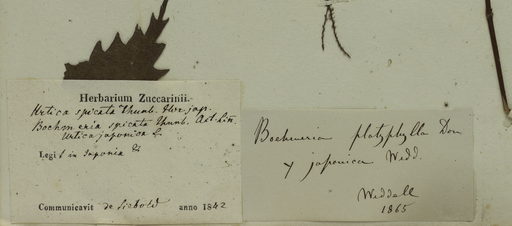 Herbarium Zuccarinii.
Urtica spicata Thunb. Flor. jap.
Boehmeria spicata Thunb. Act. Lin.
Urtica japonica L.
Legit in Japonia
Communicavit de Siebold anno 1842
Boehmeria platyphylla Don
γ japonica Wedd.
Weddell
1865